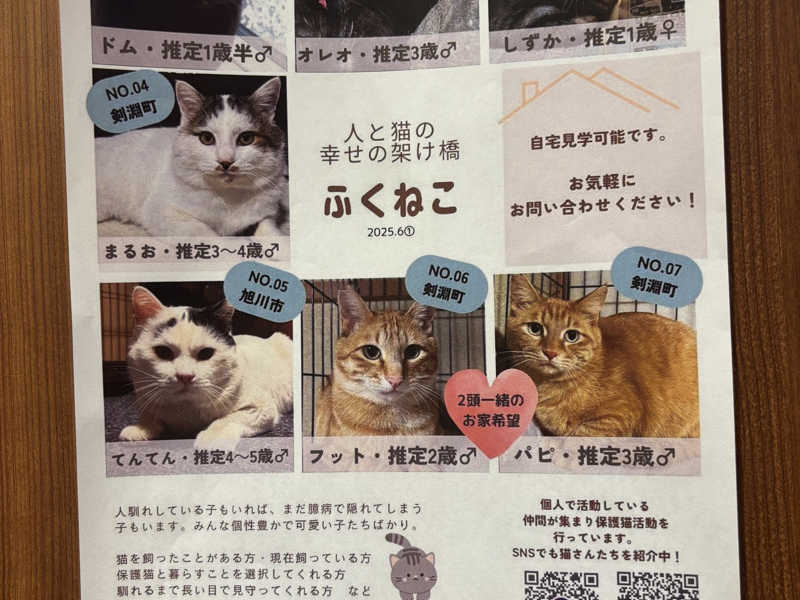 ドム・推定1歳半♂
オレオ・推定3歳♂
しずか・推定1歳♀
NO.04
剣淵町
まるお・推定3〜4歳♂
人と猫の
幸せの架け橋
ふくねこ
2025.6①
自宅見学可能です。
お気軽に
お問い合わせください！
NO.05
旭川市
てんてん・推定4〜5歳♂
NO.06
剣淵町
フット・推定2歳♂
2頭一緒の
お家希望
NO.07
剣淵町
パピ・推定3歳♂
人馴れしている子もいれば、まだ臆病で隠れてしまう
子もいます。みんな個性豊かで可愛い子たちばかり。
猫を飼ったことがある方・現在飼っている方
保護猫と暮らすことを選択してくれる方
馴れるまで長い目で見守ってくれる方　など
個人で活動している
仲間が集まり保護猫活動を
行っています。
SNSでも猫さんたちを紹介中！